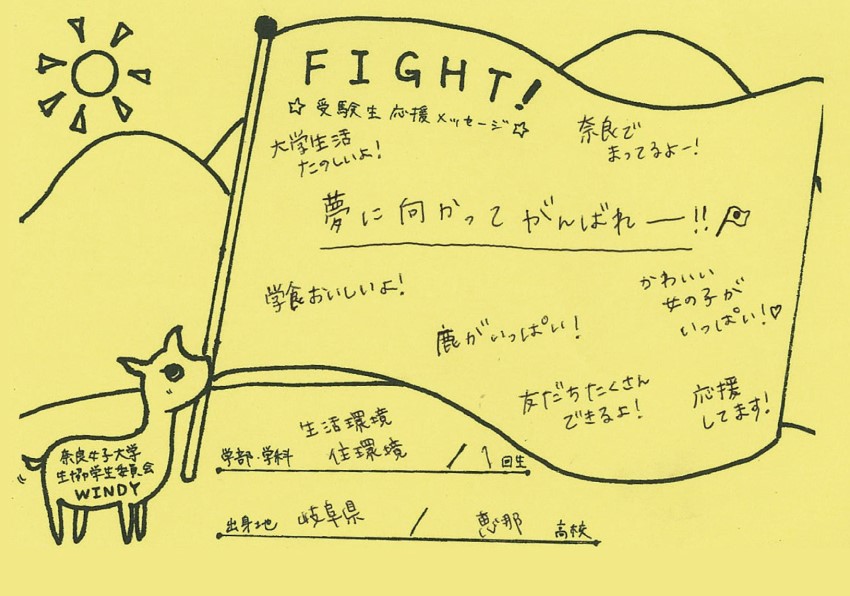 FIGHT!
☆受験生応援メッセージ☆
大学生活
たのしいよ!
奈良で
まってるよー!
夢に向かってがんばれー!!
学食おいしいよ!
かわいい
女の子が
いっぱい!♡
鹿がいっぱい!
友だちたくさん
できるよ!
応援
してます!
奈良女子大学
生協学生委員会
WINDY
生活環境
学部・学科 住環境 / 1回生
出身地 岐阜県 / 恵那 高校